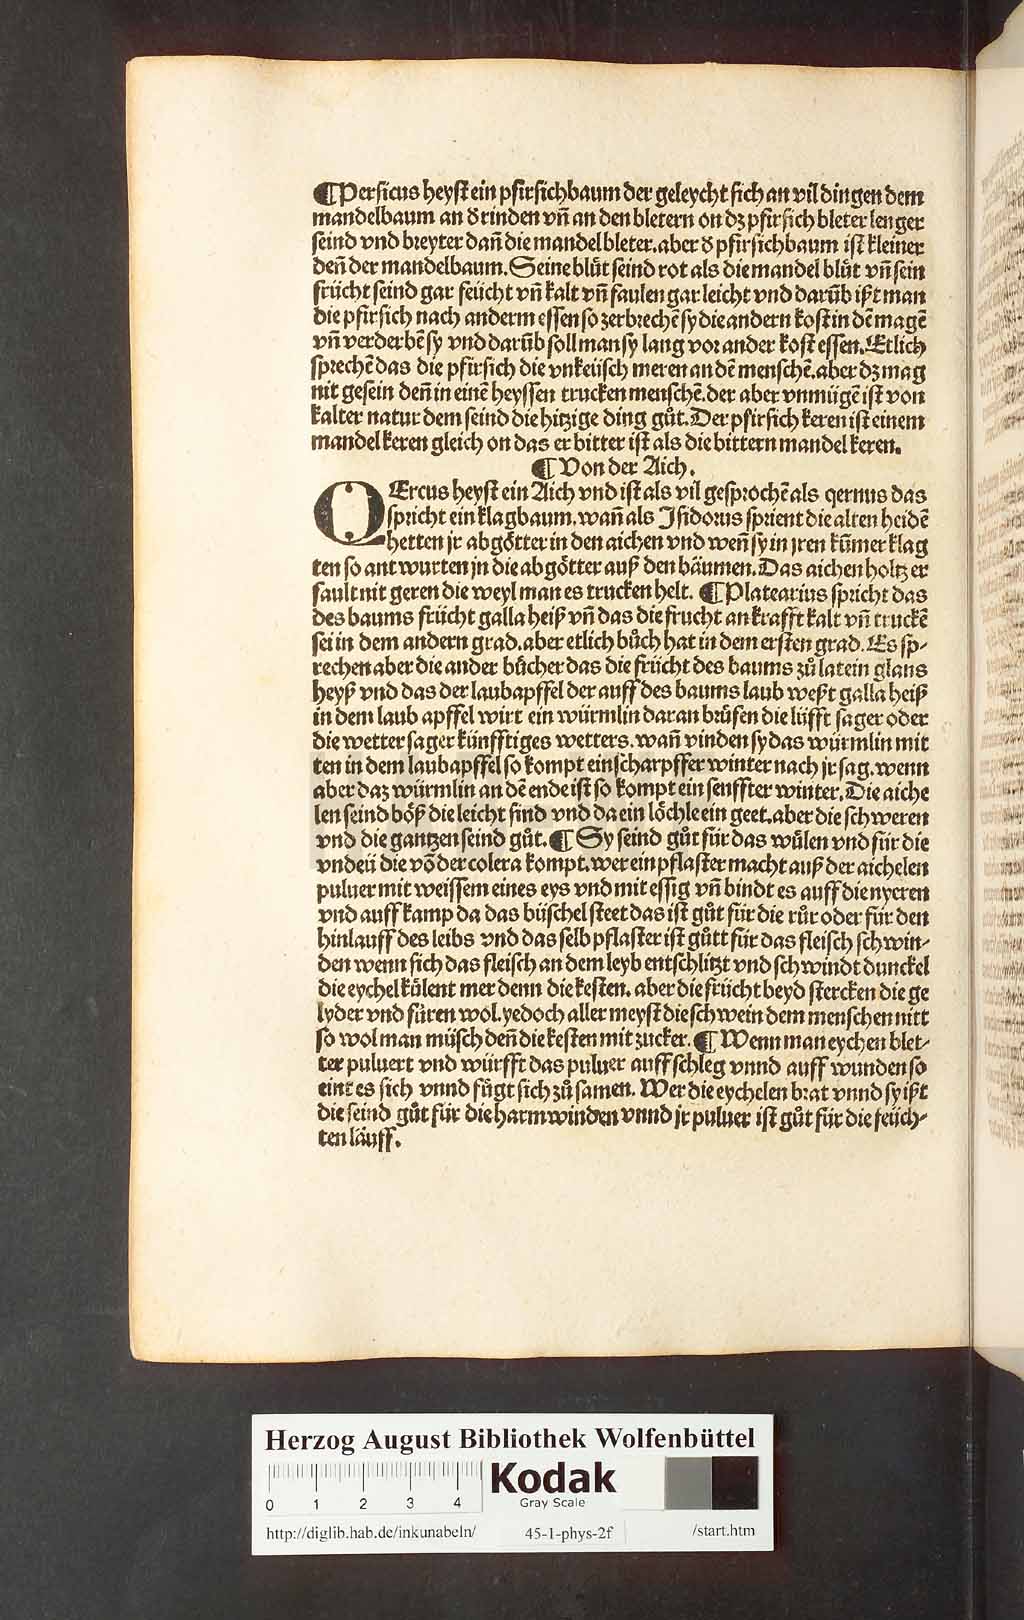 ¶Persicus heyst ein pfirsichbaum der geleycht sich an vil dingen dem
mandelbaum an d᷑ rinden vn̄ an den bletern on dz pfirsich bleter lenger
seind vnd breyter dan̄ die mandel bleter. aber d᷑ pfirsichbaum ist kleiner
den̄ der mandelbaum. Seine blüt seind rot als die mandel blüt vn̄ sein
frücht seind gar feücht vn̄ kalt vn̄ faulen gar leicht vnd darūb ißt man
die pfirsich nach anderm essen so zerbrechē sy die andern kost in dē magē
vn̄ verderbē sy vnd darūb soll man sy lang vor ander kost essen. Etlich
sprechē das die pfirsich die vnkeüsch meren an dē menschē. aber dz mag
nit gesein den̄ in einē heyssen trucken menschē. der aber vnmügē ist von
kalter natur dem seind die hitzige ding gůt. Der pfirsich keren ist einem
mandel keren gleich on das er bitter ist als die bittern mandel keren.
¶ Von der Aich.
QErcus heyst ein Aich vnd ist als vil gesprochē als qernus das
spricht ein klagbaum. wan̄ als Isidorus sprient die alten heidē
hetten jr abgötter in den aichen vnd wen̄ sy in jren kümer klag
ten so antwurten jn die abgötter auß den bäumen. Das aichen holtz er
fault nit geren die weyl man es trucken helt. ¶Platearius spricht das
des baums frücht galla heiß vn̄ das die frucht an krafft kalt vn̄ truckē
sei in dem andern grad. aber etlich bůch hat in dem ersten grad. Es sp-
rechen aber die ander bücher das die frücht des baums zů latein glans
heyß vnd das der laubapffel der auff des baums laub weßt galla heiß
in dem laub apffel wirt ein würmlin daran brüfen die lüfft sager oder
die wetter sager künfftiges wetters. wan̄ vinden sy das würmlin mit
ten in dem laubapffel so kompt ein scharpffer winter nach jr sag. wenn
aber daz würmlin an dē ende ist so kompt ein senffter winter. Die aiche
len seind böß die leicht sind vnd da ein löchle ein geet. aber die schweren
vnd die gantzen seind gůt. ¶ Sy seind gůt für das wůlen vnd für die
vndeü die vō der colera kompt. wer ein pflaster macht auß der aichelen
puluer mit weissem eines eys vnd mit essig vn̄ bindt es auff die nyeren
vnd auff kamp da das büschel steet das ist gůt für die růr oder für den
hinlauff des leibs vnd das selb pflaster ist gůtt für das fleisch schwin-
den wenn sich das fleisch an dem leyb entschlitzt vnd schwindt dunckel
die eychel külent mer denn die kesten. aber die frücht beyd stercken die ge
lyder vnd füren wol. yedoch aller meyst die schwein dem menschen nitt
so wol man müsch den̄ die kesten mit zucker. ¶ Wenn man eychen blet-
ter puluert vnd würfft das puluer auff schleg vnnd auff wunden so
eint es sich vnnd fügt sich zů samen. Wer die eychelen brat vnnd sy ißt
die seind gůt für die harmwinden vnnd jr puluer ist gůt für die feüch-
ten läuff.
Herzog August Bibliothek Wolfenbüttel
0 1 2 3 4
Kodak
Gray Scale
http://diglib.hab.de/inkunabeln/ 45-1-phys-2f /start.htm